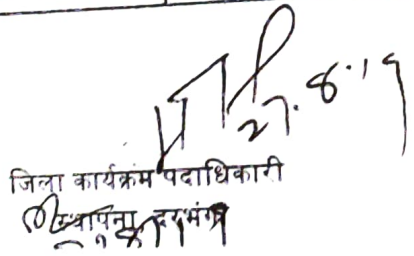 27.8.19
जिला कार्यक्रम पदाधिकारी
स्थापना, दरभंगा